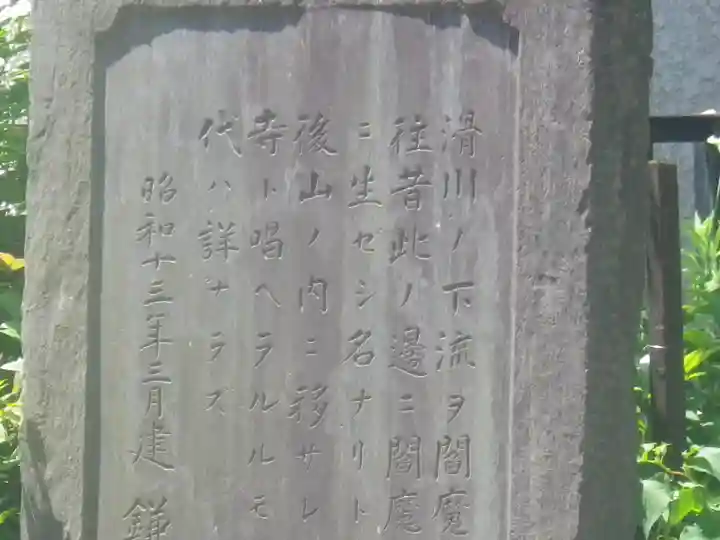 滑川ノ下流ヲ閻魔
往昔此ノ邊ニ閻魔
ニ生ゼシ名ナリト
後山ノ内ニ移サレ
寺ト唱ヘラルルモ
代ハ詳ナラズ
昭和十三年三月建 鎌